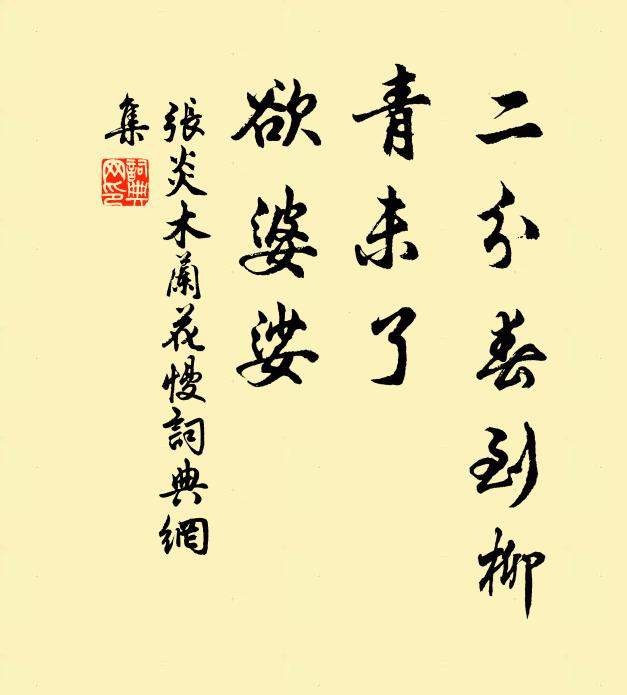 二分春到柳
青未了
欲婆娑
張炎木蘭花慢詞典網
集
詞典
网印